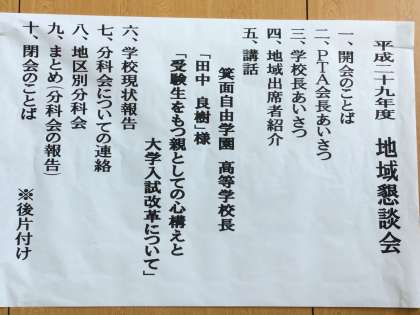 平成二十九年度 地域懇談会
一、開会のことば
二、PTA会長あいさつ
三、学校長あいさつ
四、地域出席者紹介
五、講話
箕面自由学園 高等学校長
「田中 良樹」様
「受験生をもつ親としての心構えと
大学入試改革について」
六、学校現状報告
七、分科会についての連絡
八、地区別分科会
九、まとめ(分科会の報告)
十、閉会のことば ※後片付け